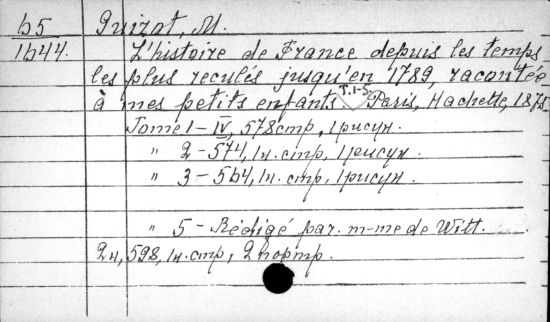 b5 Guizot, M.
1b44. L'histoire de France depuis les temps
les plus reculés jusqu'en 1789, racontée
à mes petits enfants. T.1-5. Paris, Hachette, 1875.
Tome 1 - IV, 578 стр., 1 рисун.
" 2 - 574, 1н. стр., 1 рисун.
" 3 - 5b4, 1н. стр., 1 рисун.
" 5 - Rédigé par. m-me de Witt.
2н, 598, 1н. стр., 2 порт.